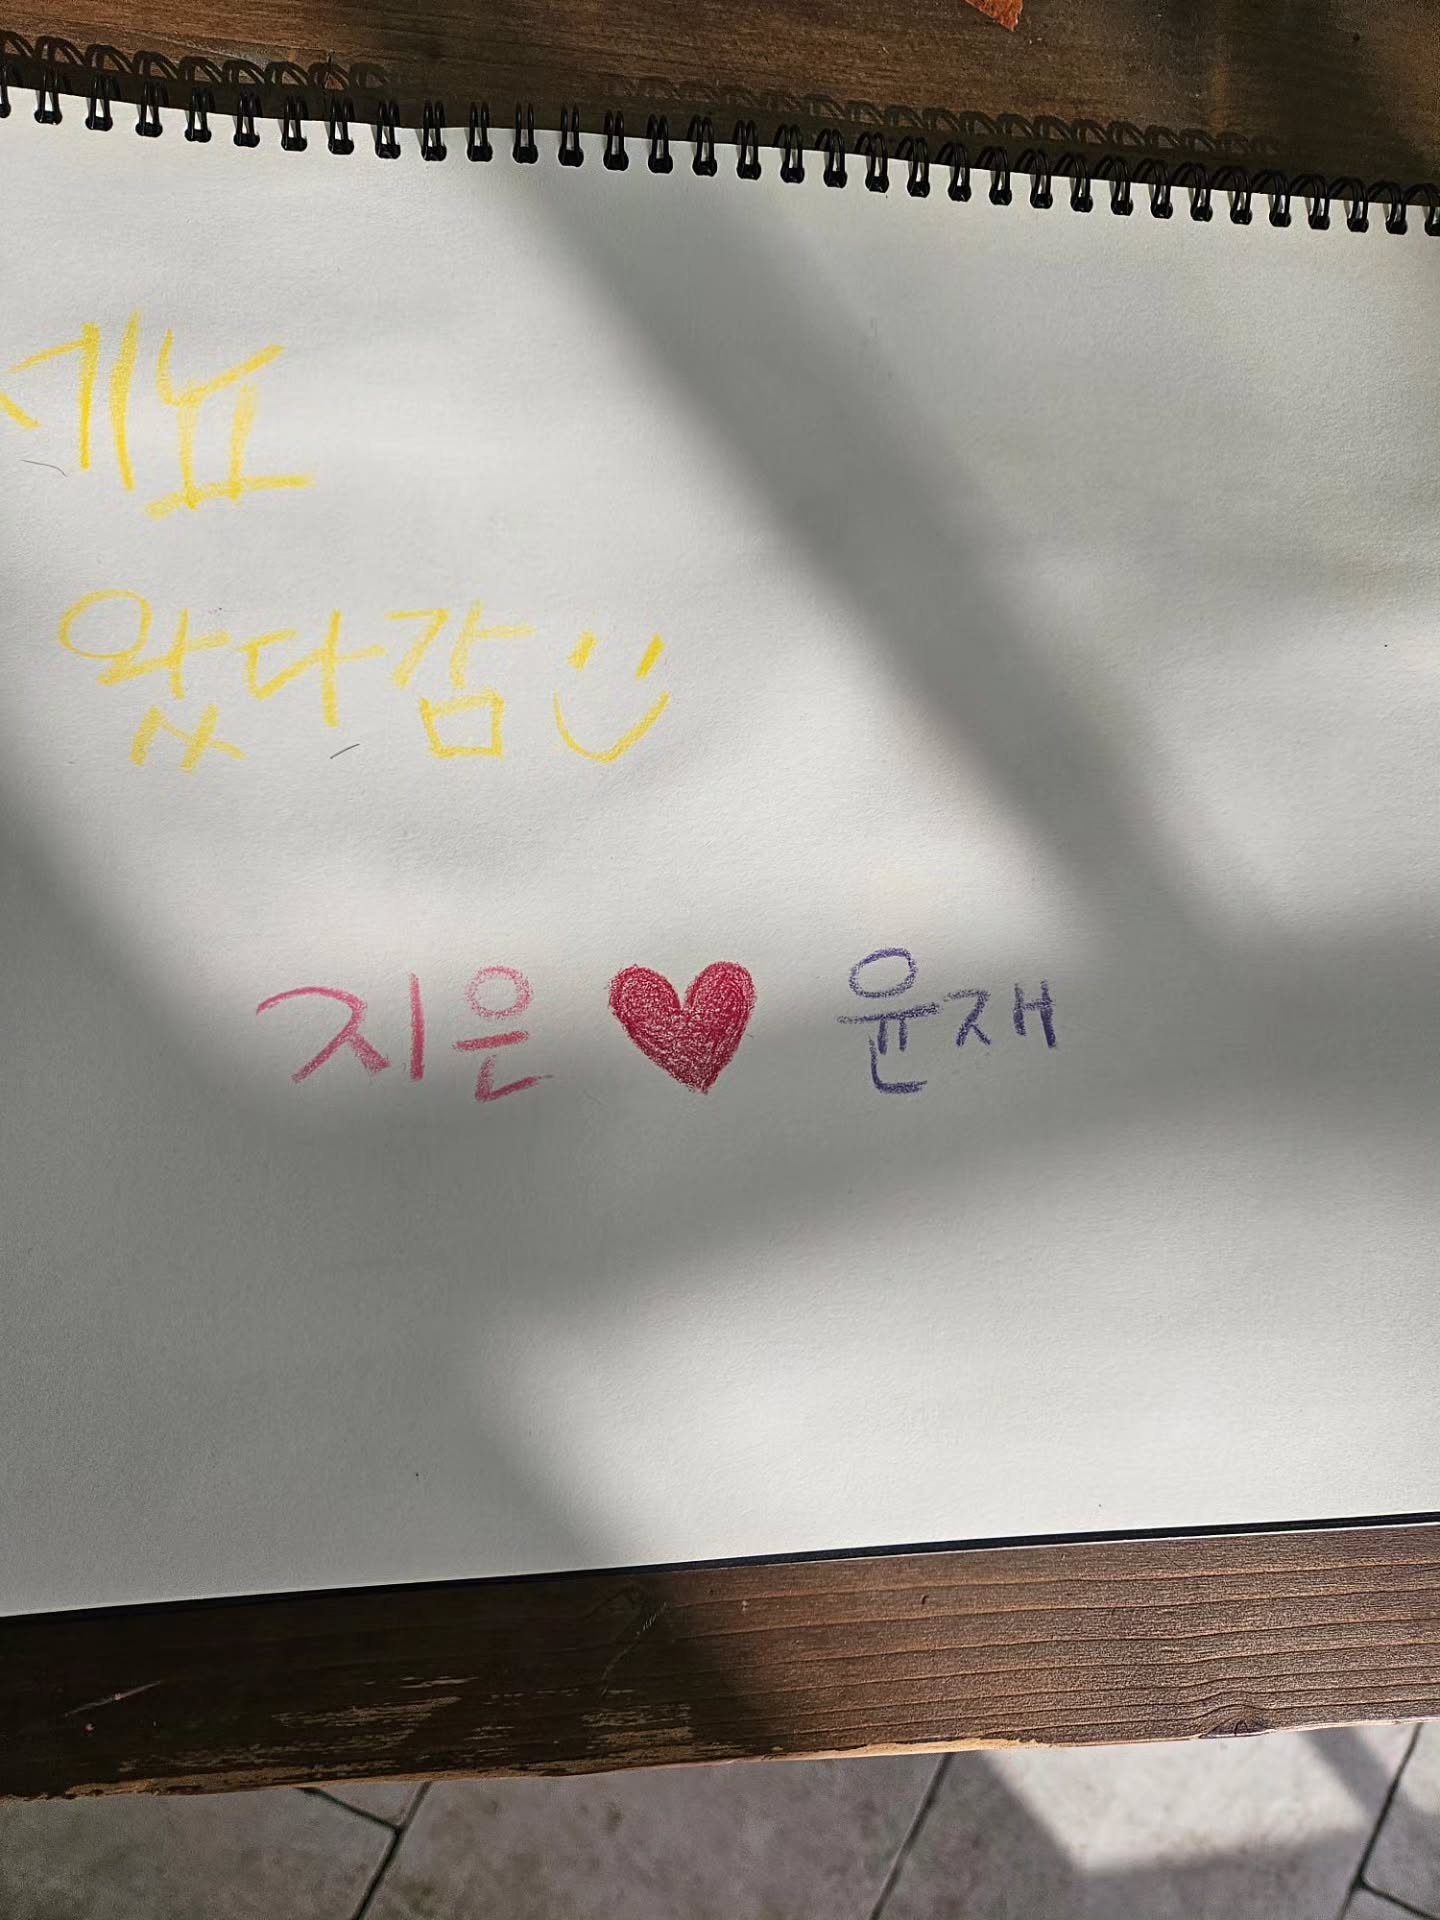 세요
왔다감
지은 ♥ 윤재